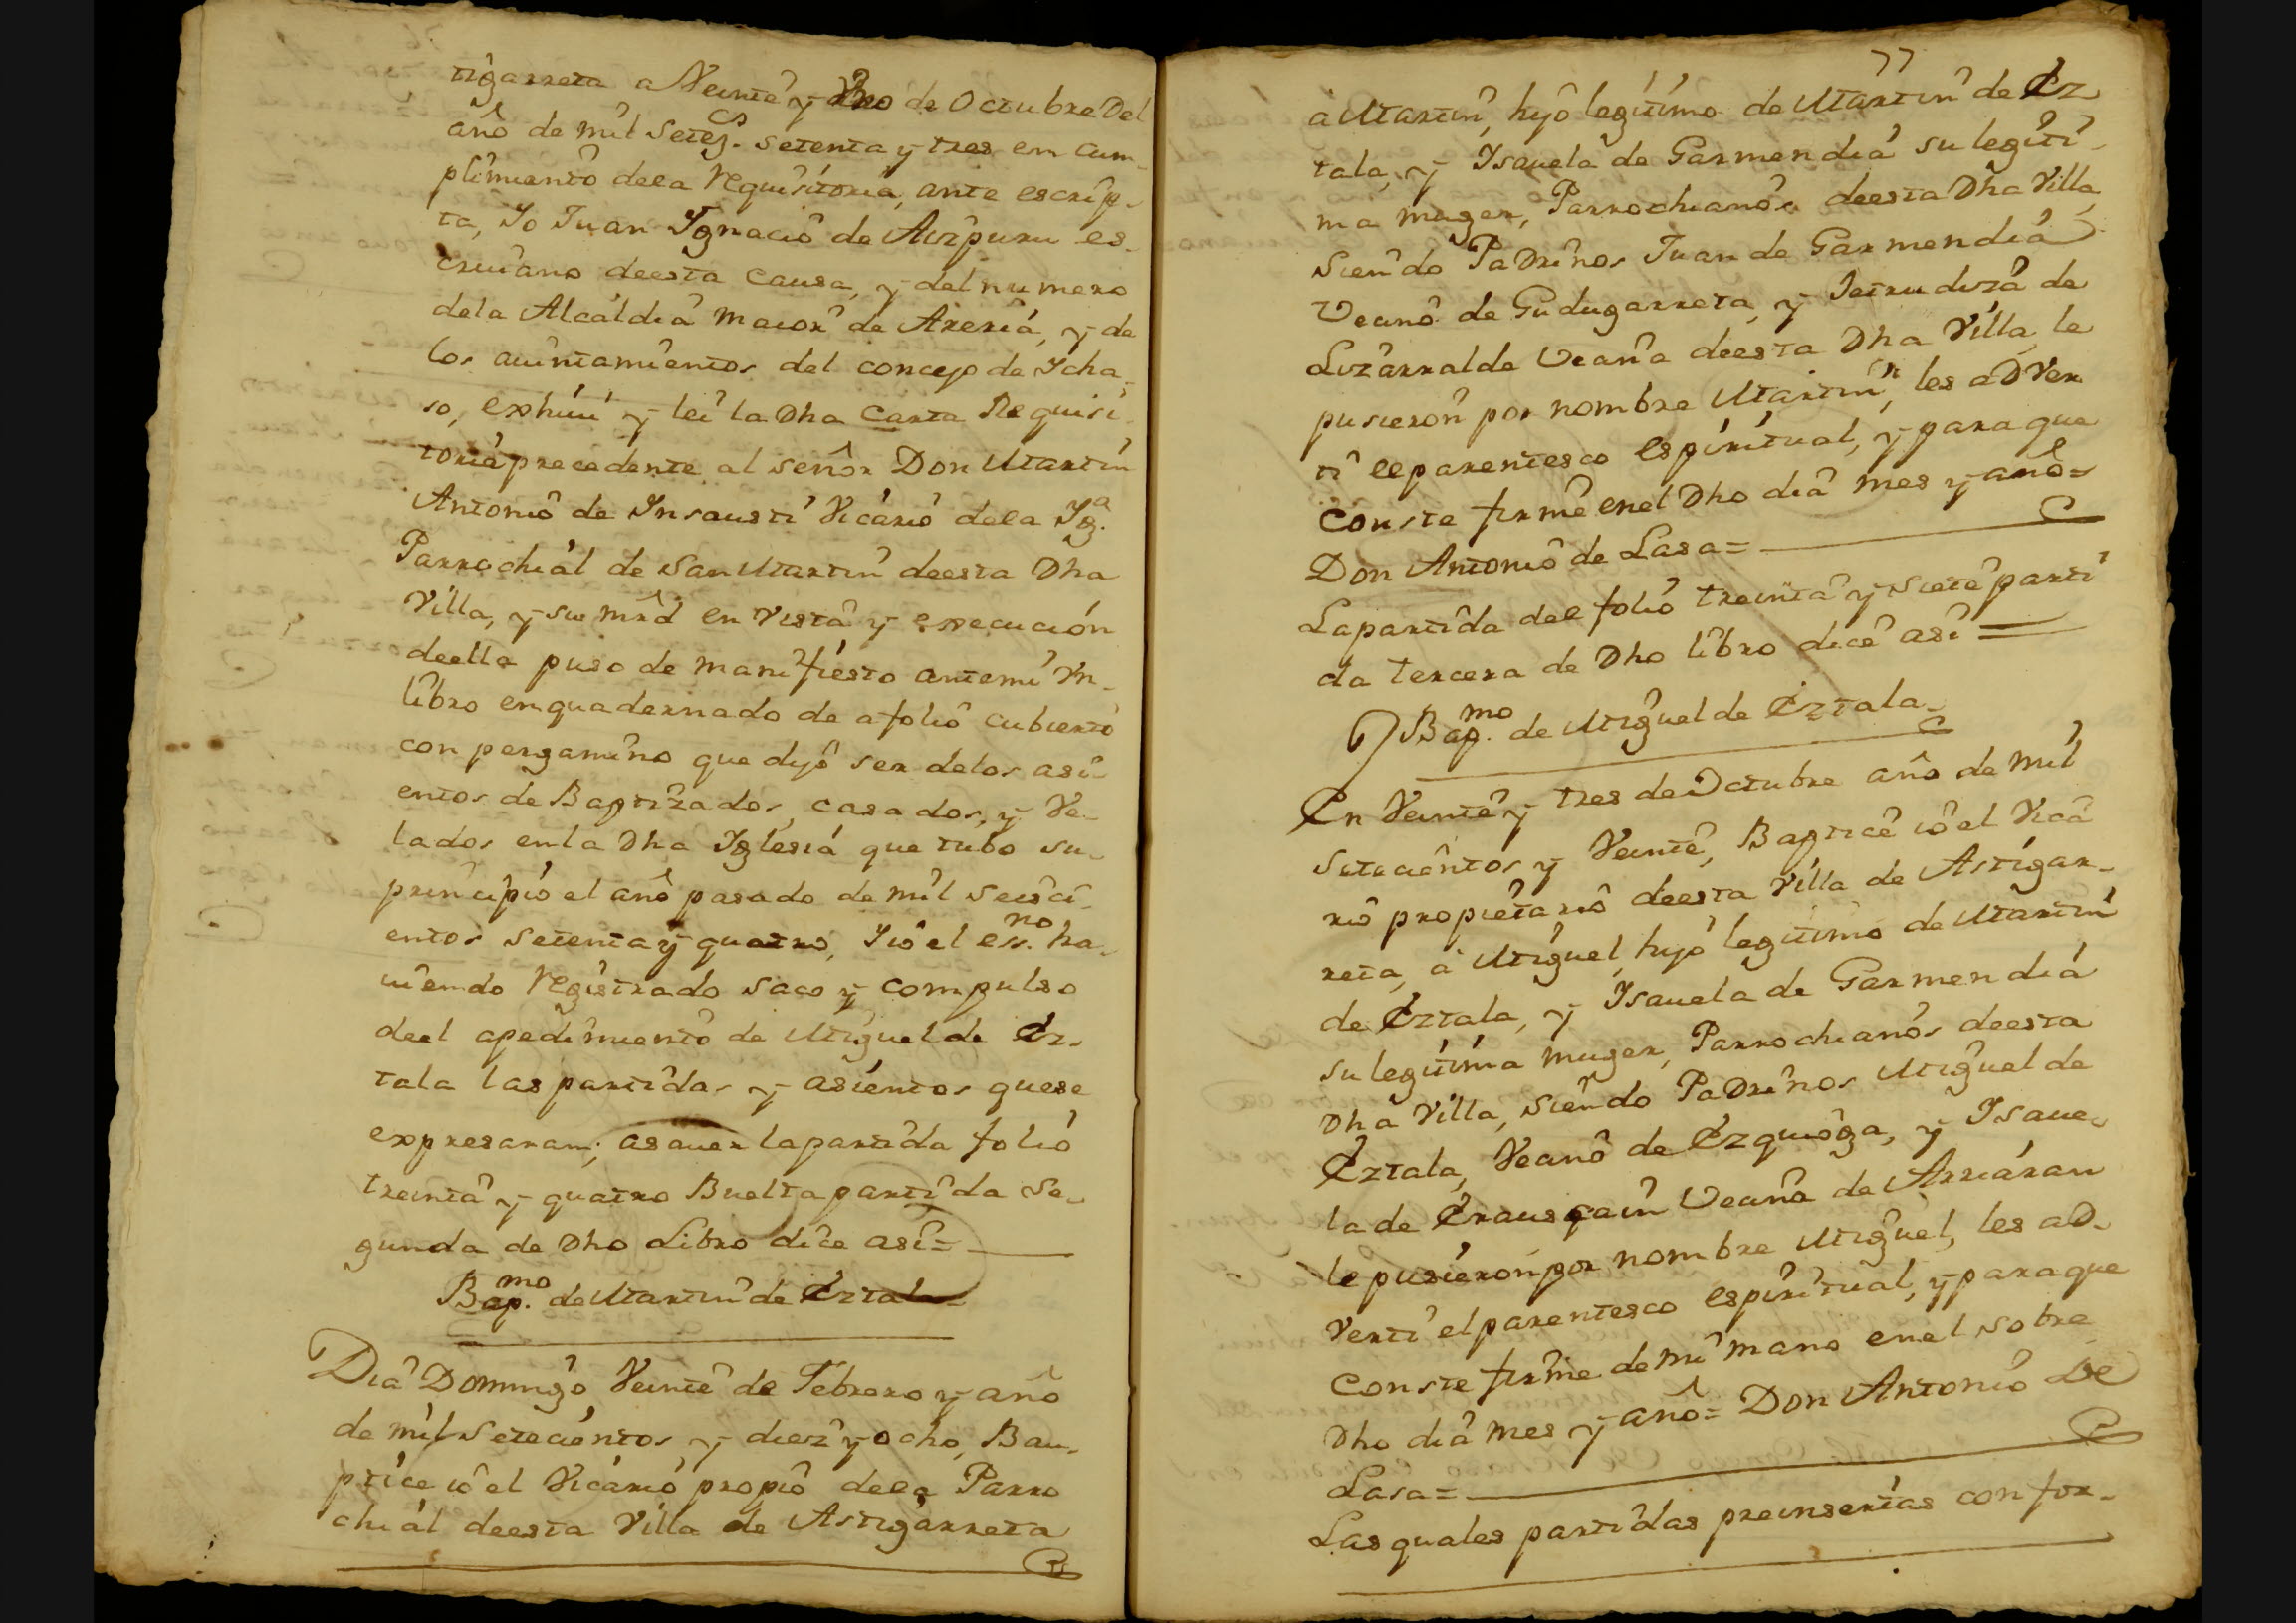 tigarreta a Veinte y Vno de Octubre Del
año de mil Seteçs. setenta y tres en cum-
plimiento dela requisitoria, ante escrip-
ta, Yo Juan Ygnacio de Aizpuru es-
criuano deesta Causa, y del numero
dela Alcaldia maior de Areria, y de
los auintamientos del concejo de Ycha-
so, exhiui y lei la Dha Carta Requisi-
toria precedente al señor Don Martin
Antonio de Insausti Vicario dela Yga.
Parrochial de San Martin deesta Dha
Villa, y su mrd en Vista y execucion
deella puso de manifiesto antemi Vn-
libro enquadernado de afolio cubierto
con pergamino que dijo ser delos asi-
entos de Baptizados, casados, y Ve-
lados en la Dha Yglesia que tubo su-
principio el año pasado de mil seisci-
entos setenta y quatro, Y io el essno. ha-
uiendo registrado saco y compulso
deel apedimiento de Miguel de Ez-
tala las partidas y asientos quese
expresaran; asauer lapartida folio
treinta y quatro Buelta partida se-
gunda de Dho Libro dice asi=
Bapmo. de Martin de Eztala=
Dia Domingo Veinte de Febrero y año
de mil Setecientos y diez y ocho, Bau-
ptice io el Vicario propio dela Parro
chial deesta Villa de Astigarreta
77
a Martin, hijo legitimo de Martin de Ez-
tala, y Ysauela de Garmendia su legiti-
ma muger, Parrochianos deesta Dha Villa,
Siendo Padrinos Juan de Garmendia
Vecino de Gudugarreta, y Jetrudiza de
Lizarralde Vecina deesta Dha Villa, le
pusieron por nombre Martin, les adver
ti el parentesco espiritual, y paraque
Conste firme enel Dho dia mes y año=
Don Antonio de Lasa=
Lapartida del folio treinta y siete parti
da tercera de Dho libro dice asi=
Bapmo. de Miguel de Eztala-
En Veinte y tres de Octubre año de mil
Setecientos y Veinte, Baptice io el Vica
rio propietario deesta Villa de Astigar-
reta, a Miguel, hijo legitimo de Martin
de Eztala, y Ysauela de Garmendia
su legitima muger, Parrochianos deesta
Dha Villa, siendo Padrinos Miguel de
Eztala, Vecino de Ezquioga, y Ysaue-
la de Erausquin Vecina de Arriaran
le pusieron por nombre Miguel, les ad-
Verti el parentesco espiritual, y paraque
Conste firme de mi mano enel sobre
Dho dia mes y año= Don Antonio De
Lasa=
Las quales partidas preinsertas confor-